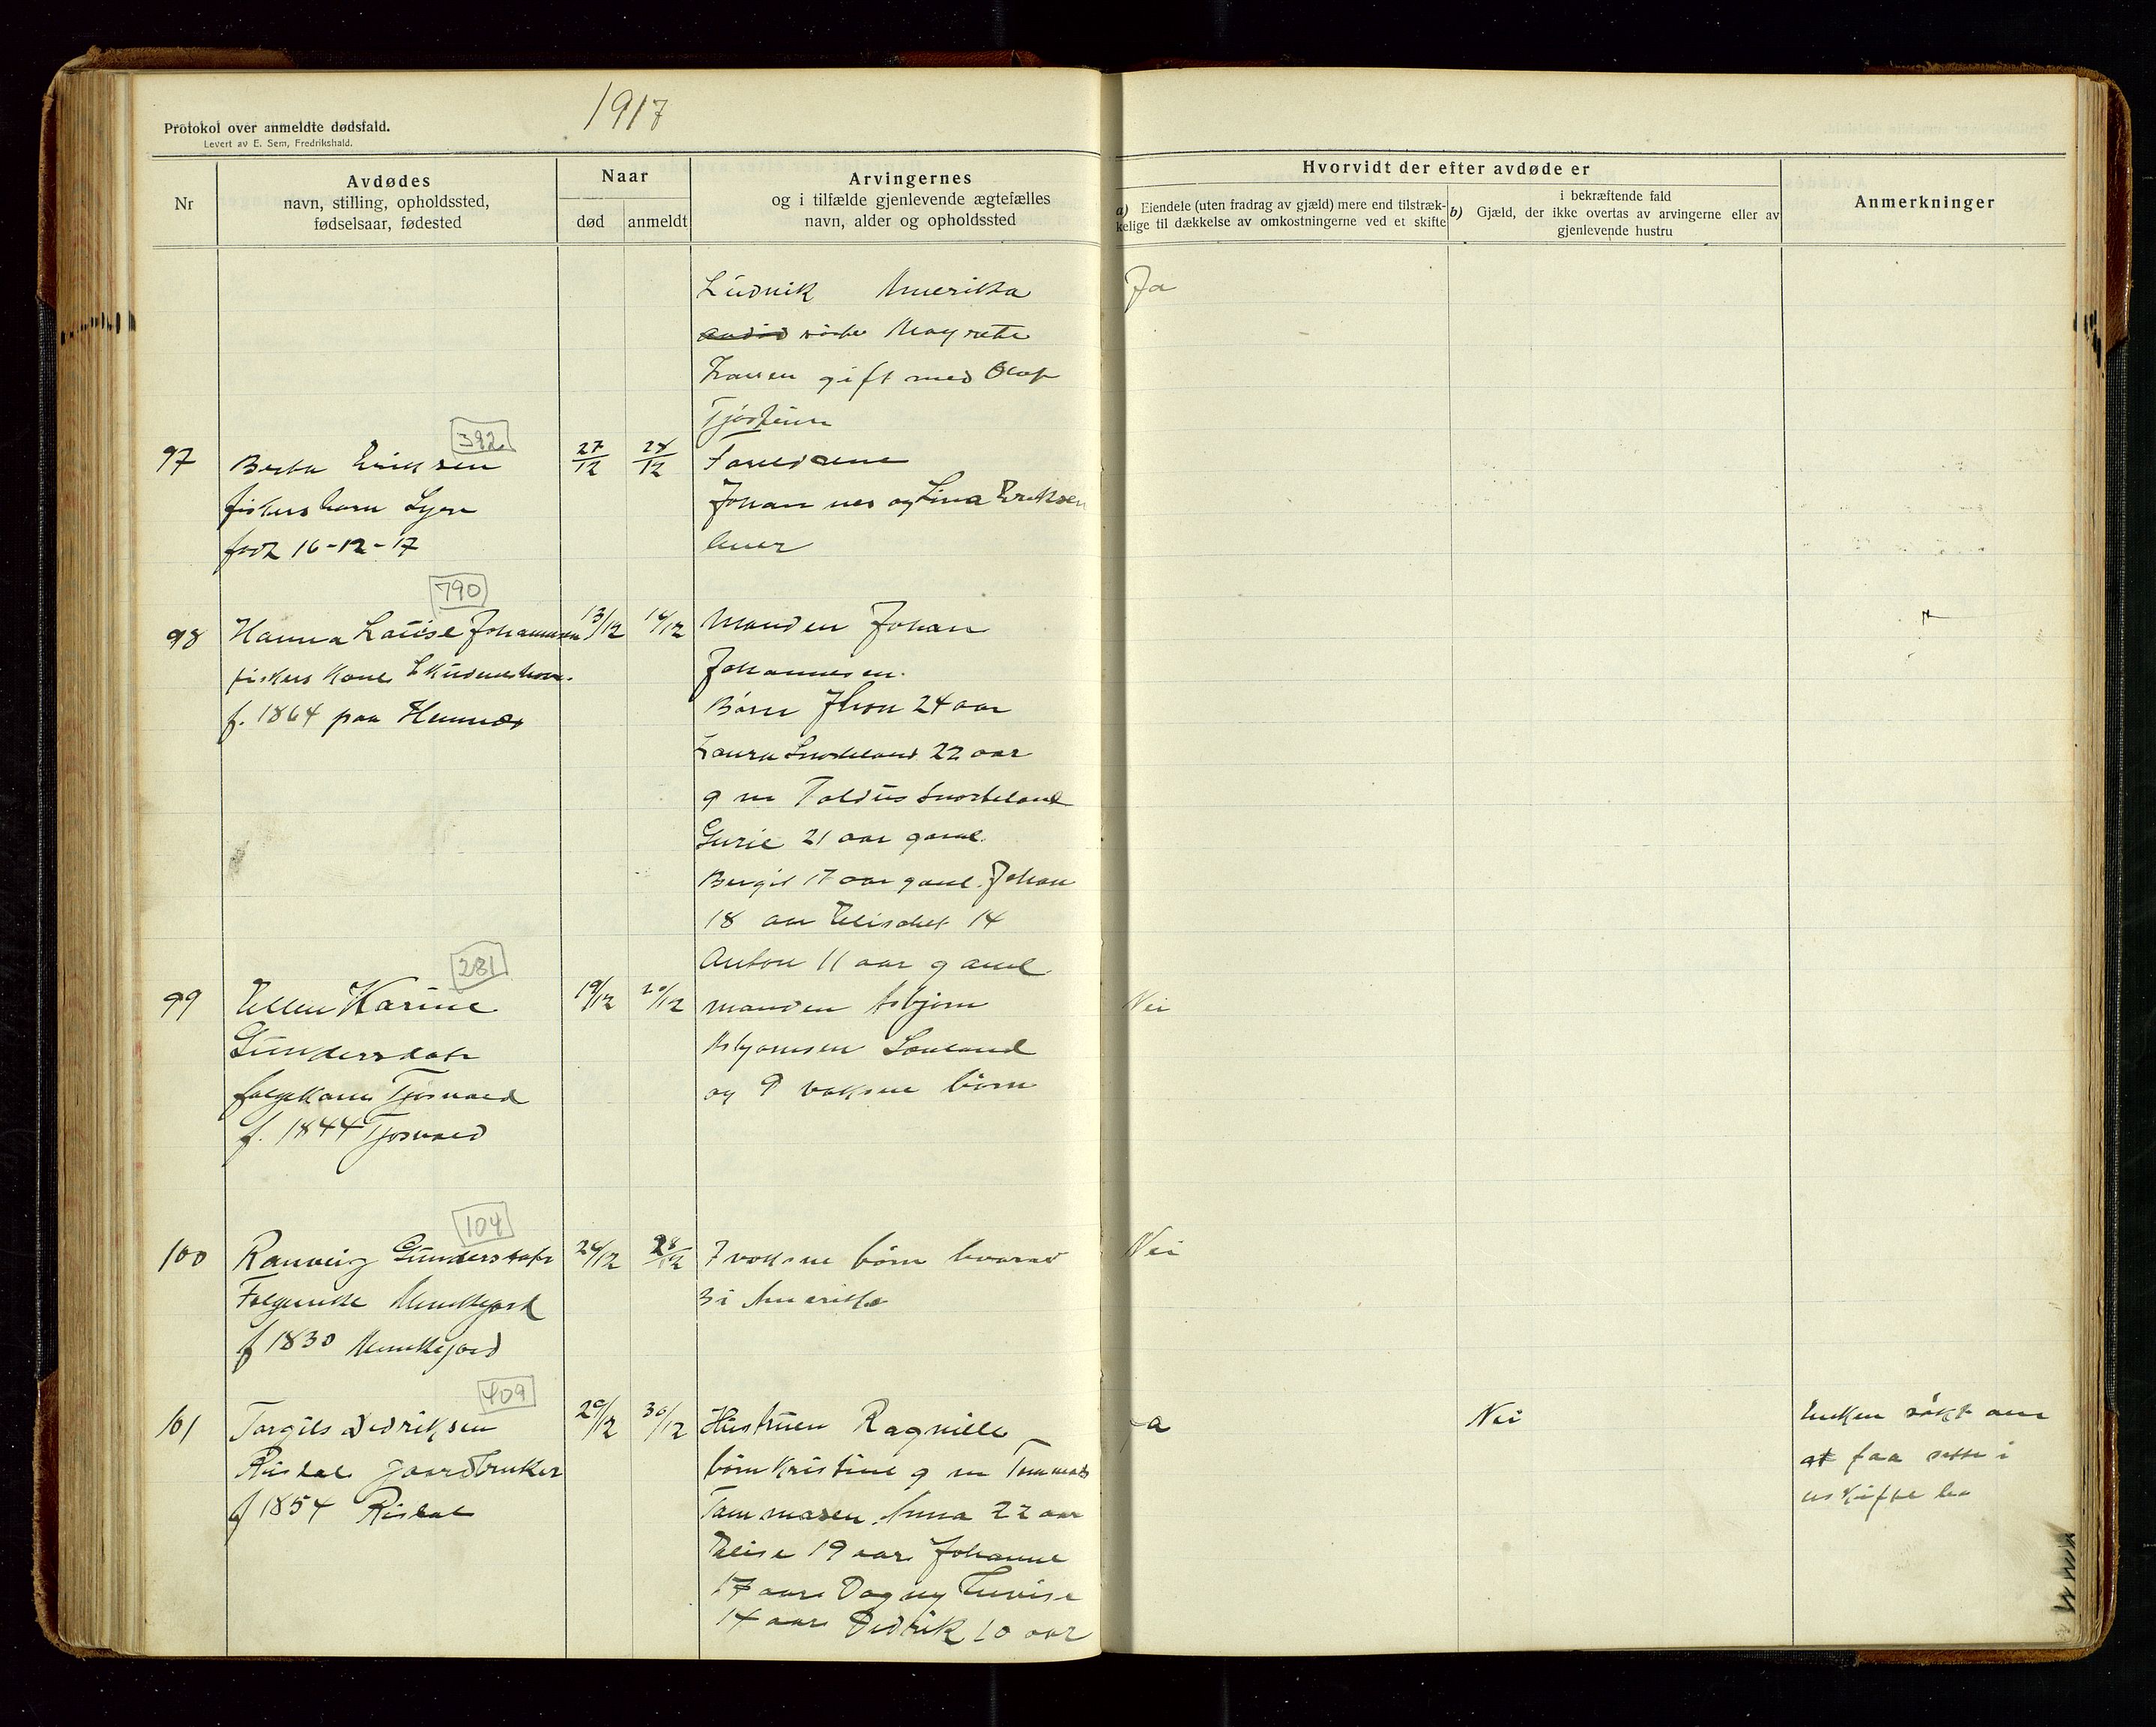 1917
Protokol over anmeldte dødsfald.
Levert av E. Sem, Fredrikshald.
Nr
Avdødes
navn, stilling, opholdssted,
fødselsaar, fødested
Naar
død
anmeldt
Arvingernes
og i tilfælde gjenlevende ægtefælles
navn, alder og opholdssted
Hvorvidt der efter avdøde er
a) Eiendele (uten fradrag av gjæld) mere end tilstræk-
kelige til dækkelse av omkostningerne ved et skifte
i bekræftende fald
b) Gjæld, der ikke overtas av arvingerne eller av
gjenlevende hustru
Anmerkninger
Ludvik Amerika
Ja
Magrete
gift med Olaf
392
97 Berta Eriksen 27/12 28/12 Forældrene
fiskers barn
Johannes og Lina Eriksen
født 16-12-17
lever
790
98 Hanna Lovise Johannesen 13/12 14/12 Manden Johan
fiskers kone Skudeneshavn
Johannesen.
f. 1864 paa
Børn Jhon 24 aar
Laura 22 aar
g m
Gurie 21 aar gaml.
Bergit 17 aar gaml. Johan
18 aar Elisabet 14
Anton 11 aar gaml
281
99 Ellen Karine 19/12 20/12 manden Asbjørn Nei
Gundersdatr
Asbjørnsen
og 9 voksne børn
f. 1844
104
100 Ranveig Gundersdatr 24/12 28/12 7 voksne børn hvorav Nei
Munkejord
3 i Amerika
f 1830 Munkejord
409
101 Torgils Didriksen 29/12 30/12 Hustruen Ragnille Ja Nei Enken søkt om
Risdal gaardbruker
børn Kristine g m Tommas
at faa sitte i
f 1854 Risdal
Tommasen. Anna 22 aar
uskiftet bo
Elise 19 aar Johanne
17 aar Dagny Lovise
14 aar Didrik 10 aar